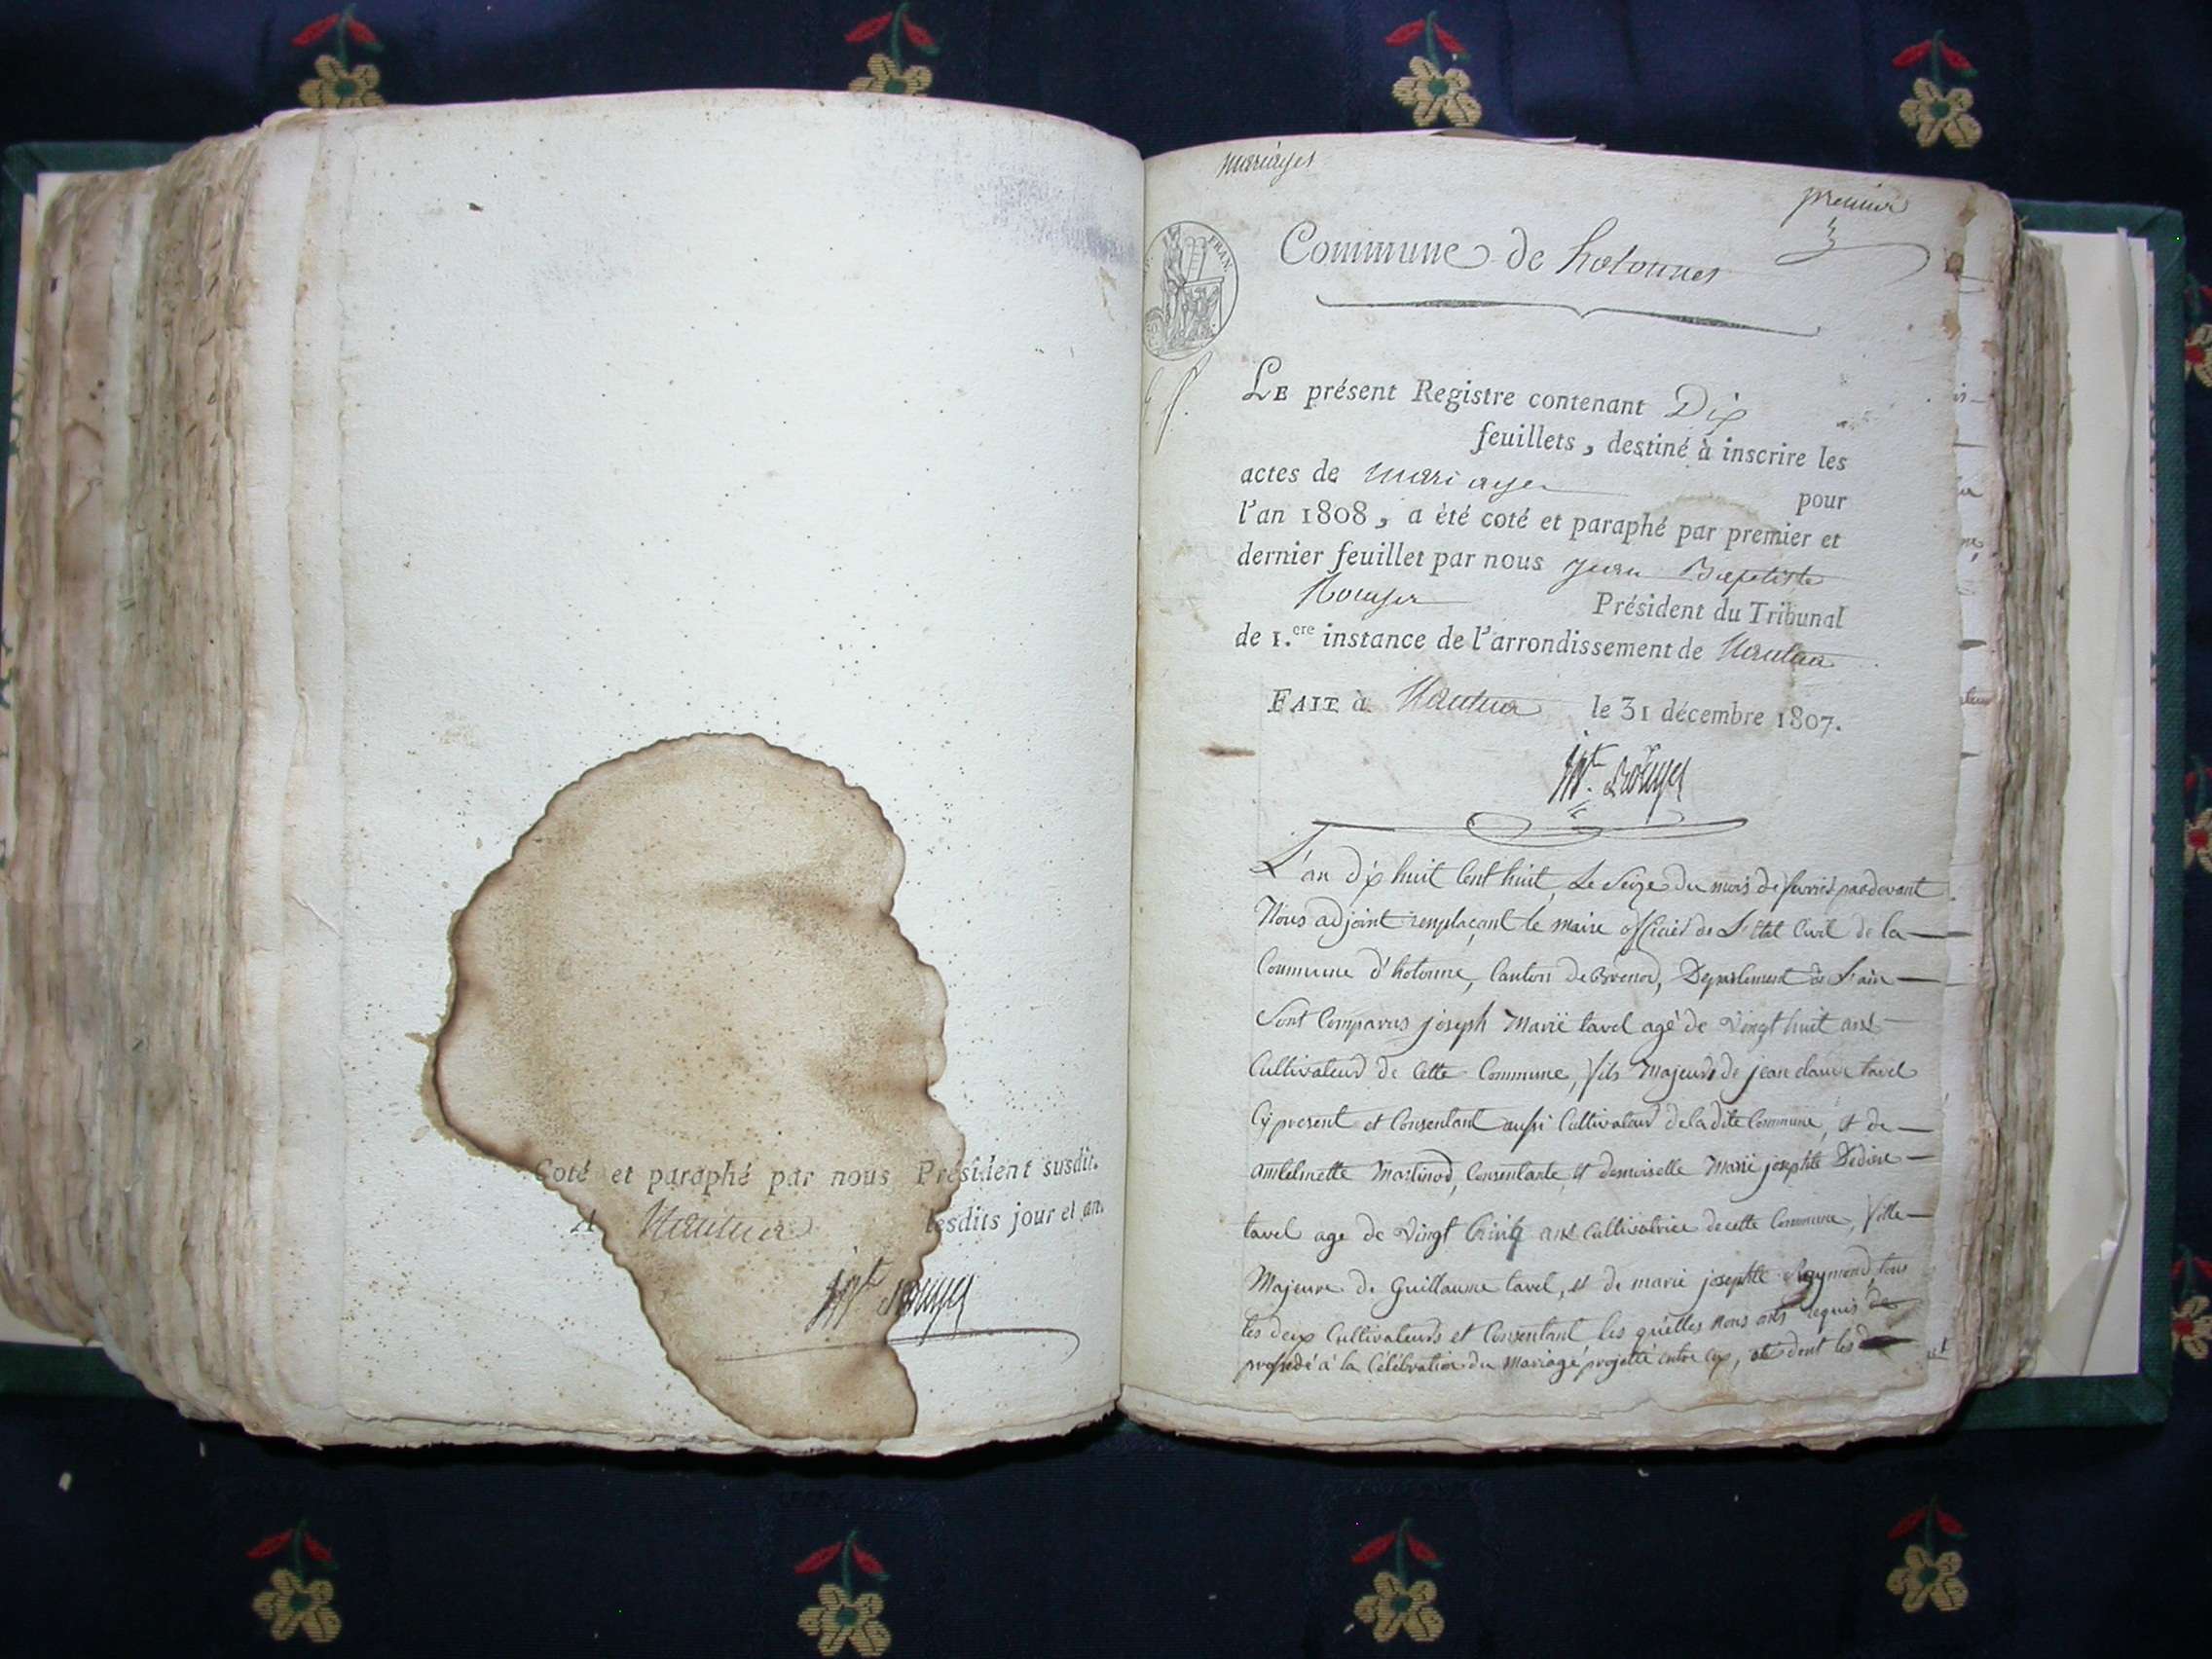 Coté et paraphé par nous Président susdit.
A Nantua lesdits jour et an.
Jn Bte Rouyer
mariages
premier
Commune de hotonnes
FRAN.
LE présent Registre contenant Dix
feuillets, destiné à inscrire les
actes de mariages pour
l'an 1808, a été coté et paraphé par premier et
dernier feuillet par nous Jean Baptiste
Rouyer Président du Tribunal
de 1.ere instance de l'arrondissement de Nantua
FAIT à Nantua le 31 décembre 1807.
Rouyer
L'an dix huit Cent huit, Le Seize du mois de fevrier pardevant
Nous adjoint remplaçant le maire officier de L'Etat Civil de la
Commune d'hotonne, Canton de Brenod, Departement de L'ain
Sont Comparus joseph Marië tavel agé de vingt huit ans
Cultivateur de Cette Commune, fils Majeur de jean claude tavel
Cÿ present et Consentant aussi Cultivateur de la dite Commune, et de
anthelmette Martinod, Consentante, et demoiselle Marië josephte Dédiere
tavel age de vingt Cinq ans Cultivatrice de cette Commune, fille
Majeure de Guillaume tavel, et de marie josephte Raymond, tous
les deux Cultivateurs et Consentant les quelles nous onts requis de
proсedé à la Célébration du Mariagé projetté entre eux, dont les